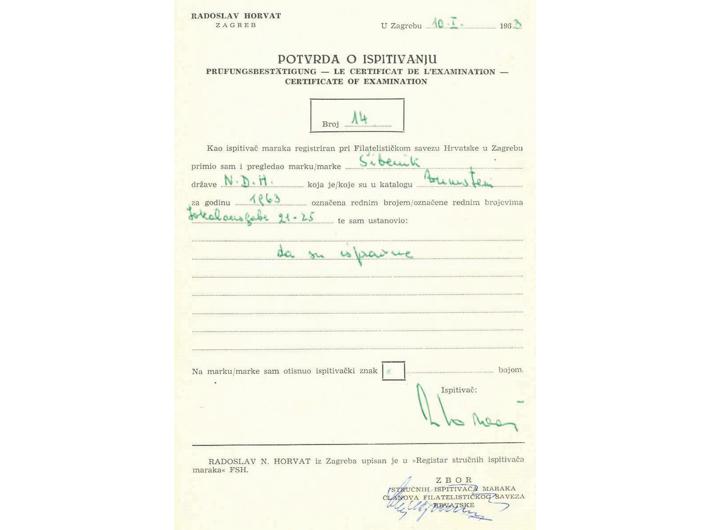 RADOSLAV HORVAT
ZAGREB
U Zagrebu 10. I. 1963
POTVRDA O ISPITIVANJU
PRÜFUNGSBESTÄTIGUNG — LE CERTIFICAT DE L'EXAMINATION —
CERTIFICATE OF EXAMINATION
Broj 14
Kao ispitivač maraka registriran pri Filatelističkom savezu Hrvatske u Zagrebu
primio sam i pregledao marku/marke Šibenik
države N.D.H. koja je/koje su u katalogu
za godinu 1963 označena rednim brojem/označene rednim brojevima
Lokalausgabe 21-25 te sam ustanovio:
da su ispravne
Na marku/marke sam otisnuo ispitivački znak bojom.
Ispitivač:
RADOSLAV N. HORVAT iz Zagreba upisan je u »Registar stručnih ispitivača
maraka« FSH.
ZBOR
STRUČNIH ISPITIVAČA MARAKA
ČLANOVA FILATELISTIČKOG SAVEZA
HRVATSKE